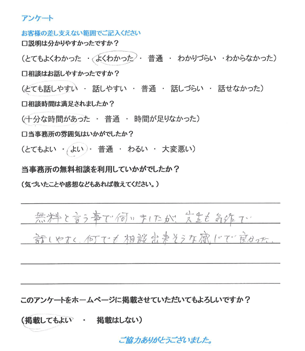 アンケート
お客様の差し支えない範囲でご記入ください
□説明は分かりやすかったですか？
（とてもよくわかった ・ よくわかった ・ 普通 ・ わかりづらい ・わからなかった）
□相談はお話しやすかったですか？
（とても話しやすい ・ 話しやすい ・ 普通 ・ 話しづらい ・ 話せなかった）
□相談時間は満足されましたか？
（十分な時間があった ・ 普通 ・ 時間が足りなかった）
□当事務所の雰囲気はいかがでしたか？
（とてもよい ・ よい ・ 普通 ・ わるい ・ 大変悪い）
当事務所の無料相談を利用していかがでしたか？
（気づいたことや感想などもあれば教えてください。）
無料と言う事で伺いましたが、先生も気さくで
話しやすく何でも相談出来そうな感じで良かった。
このアンケートをホームページに掲載させていただいてもよろしいですか？
（掲載してもよい ・ 掲載はしない）
ご協力ありがとうございました。